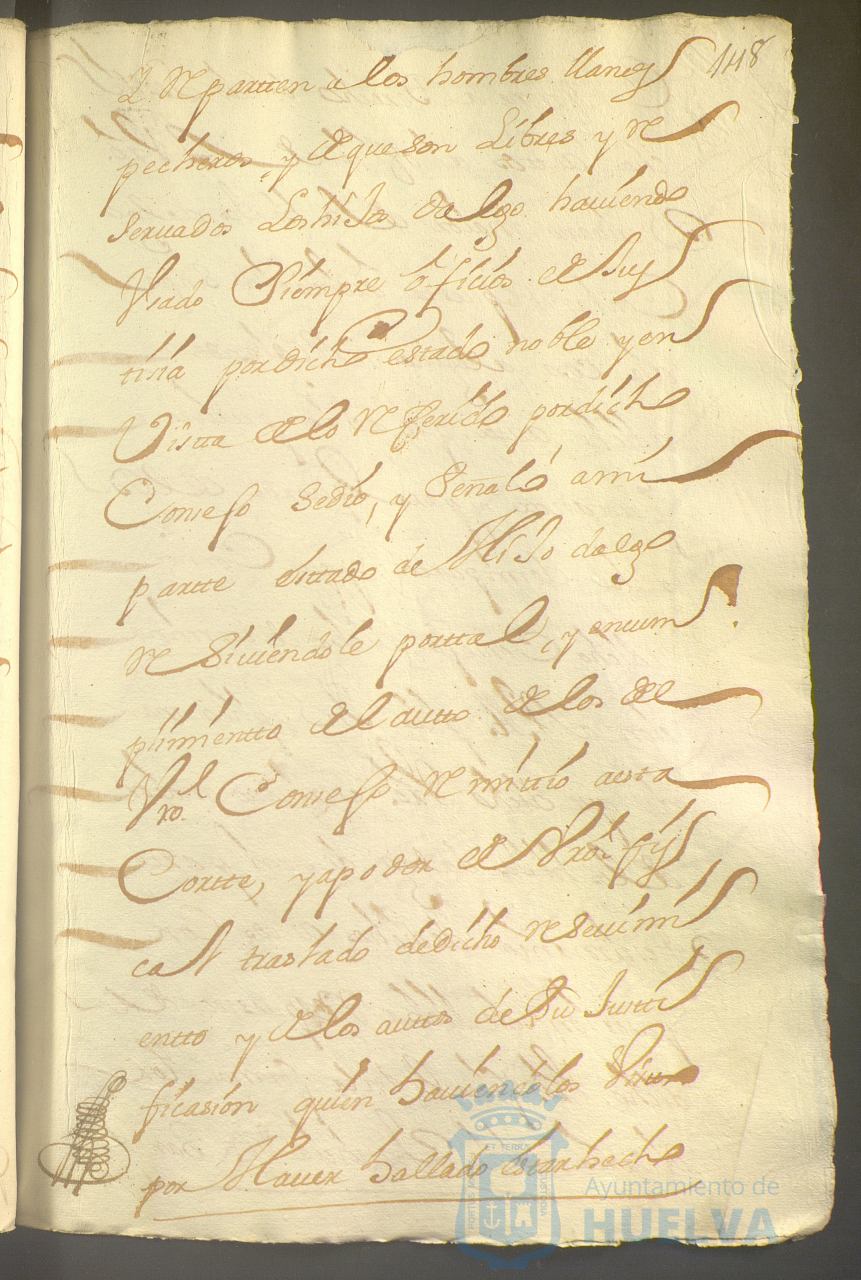 118
Y Repartten a los hombres llanos
pecheros, y de que son Libres y Re
servados Los hiJos dalgo haviendo
Usado Siempre ofiçios de Jus
tiçia por dicho estado noble y en
Vistta de lo Referido por dicho
Consejo se dio, y Señalo a mi
partte esttado de HiJo dalgo
Resiviendole por tal, y en cum
plimientto del autto de los del
Vro. l Consejo Remittio a esta
Cortte, y a poder del Vro. fis
cal traslado de dicho Resevimi
entto y de los auttos de Su Justti
ficasion quien haviendolos Visto
por Haver hallado estar hecho
Ayuntamiento de
HUELVA